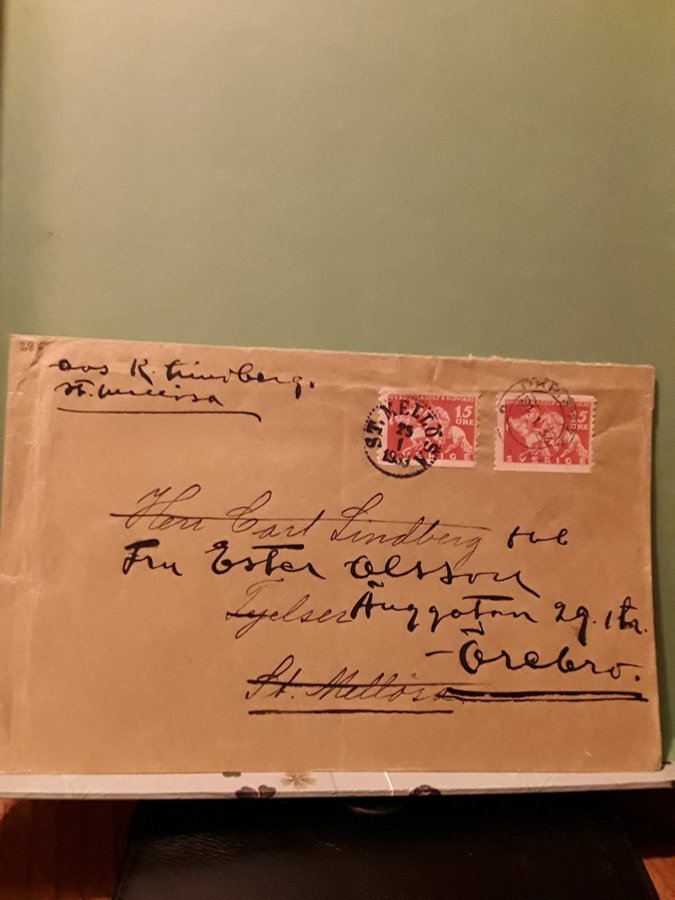 avs K. Lindberg.
St. Mellösa
GUSTAF II ADOLF 6 NOV 1632
15
ÖRE
SVERIGE
ST. MELLÖSA
23
1
1933
15
ÖRE
SVERIGE
Herr Carl Lindberg
Fru Ester Olsson
Änggatan 29. 1 tr.
Örebro.
St. Mellösa